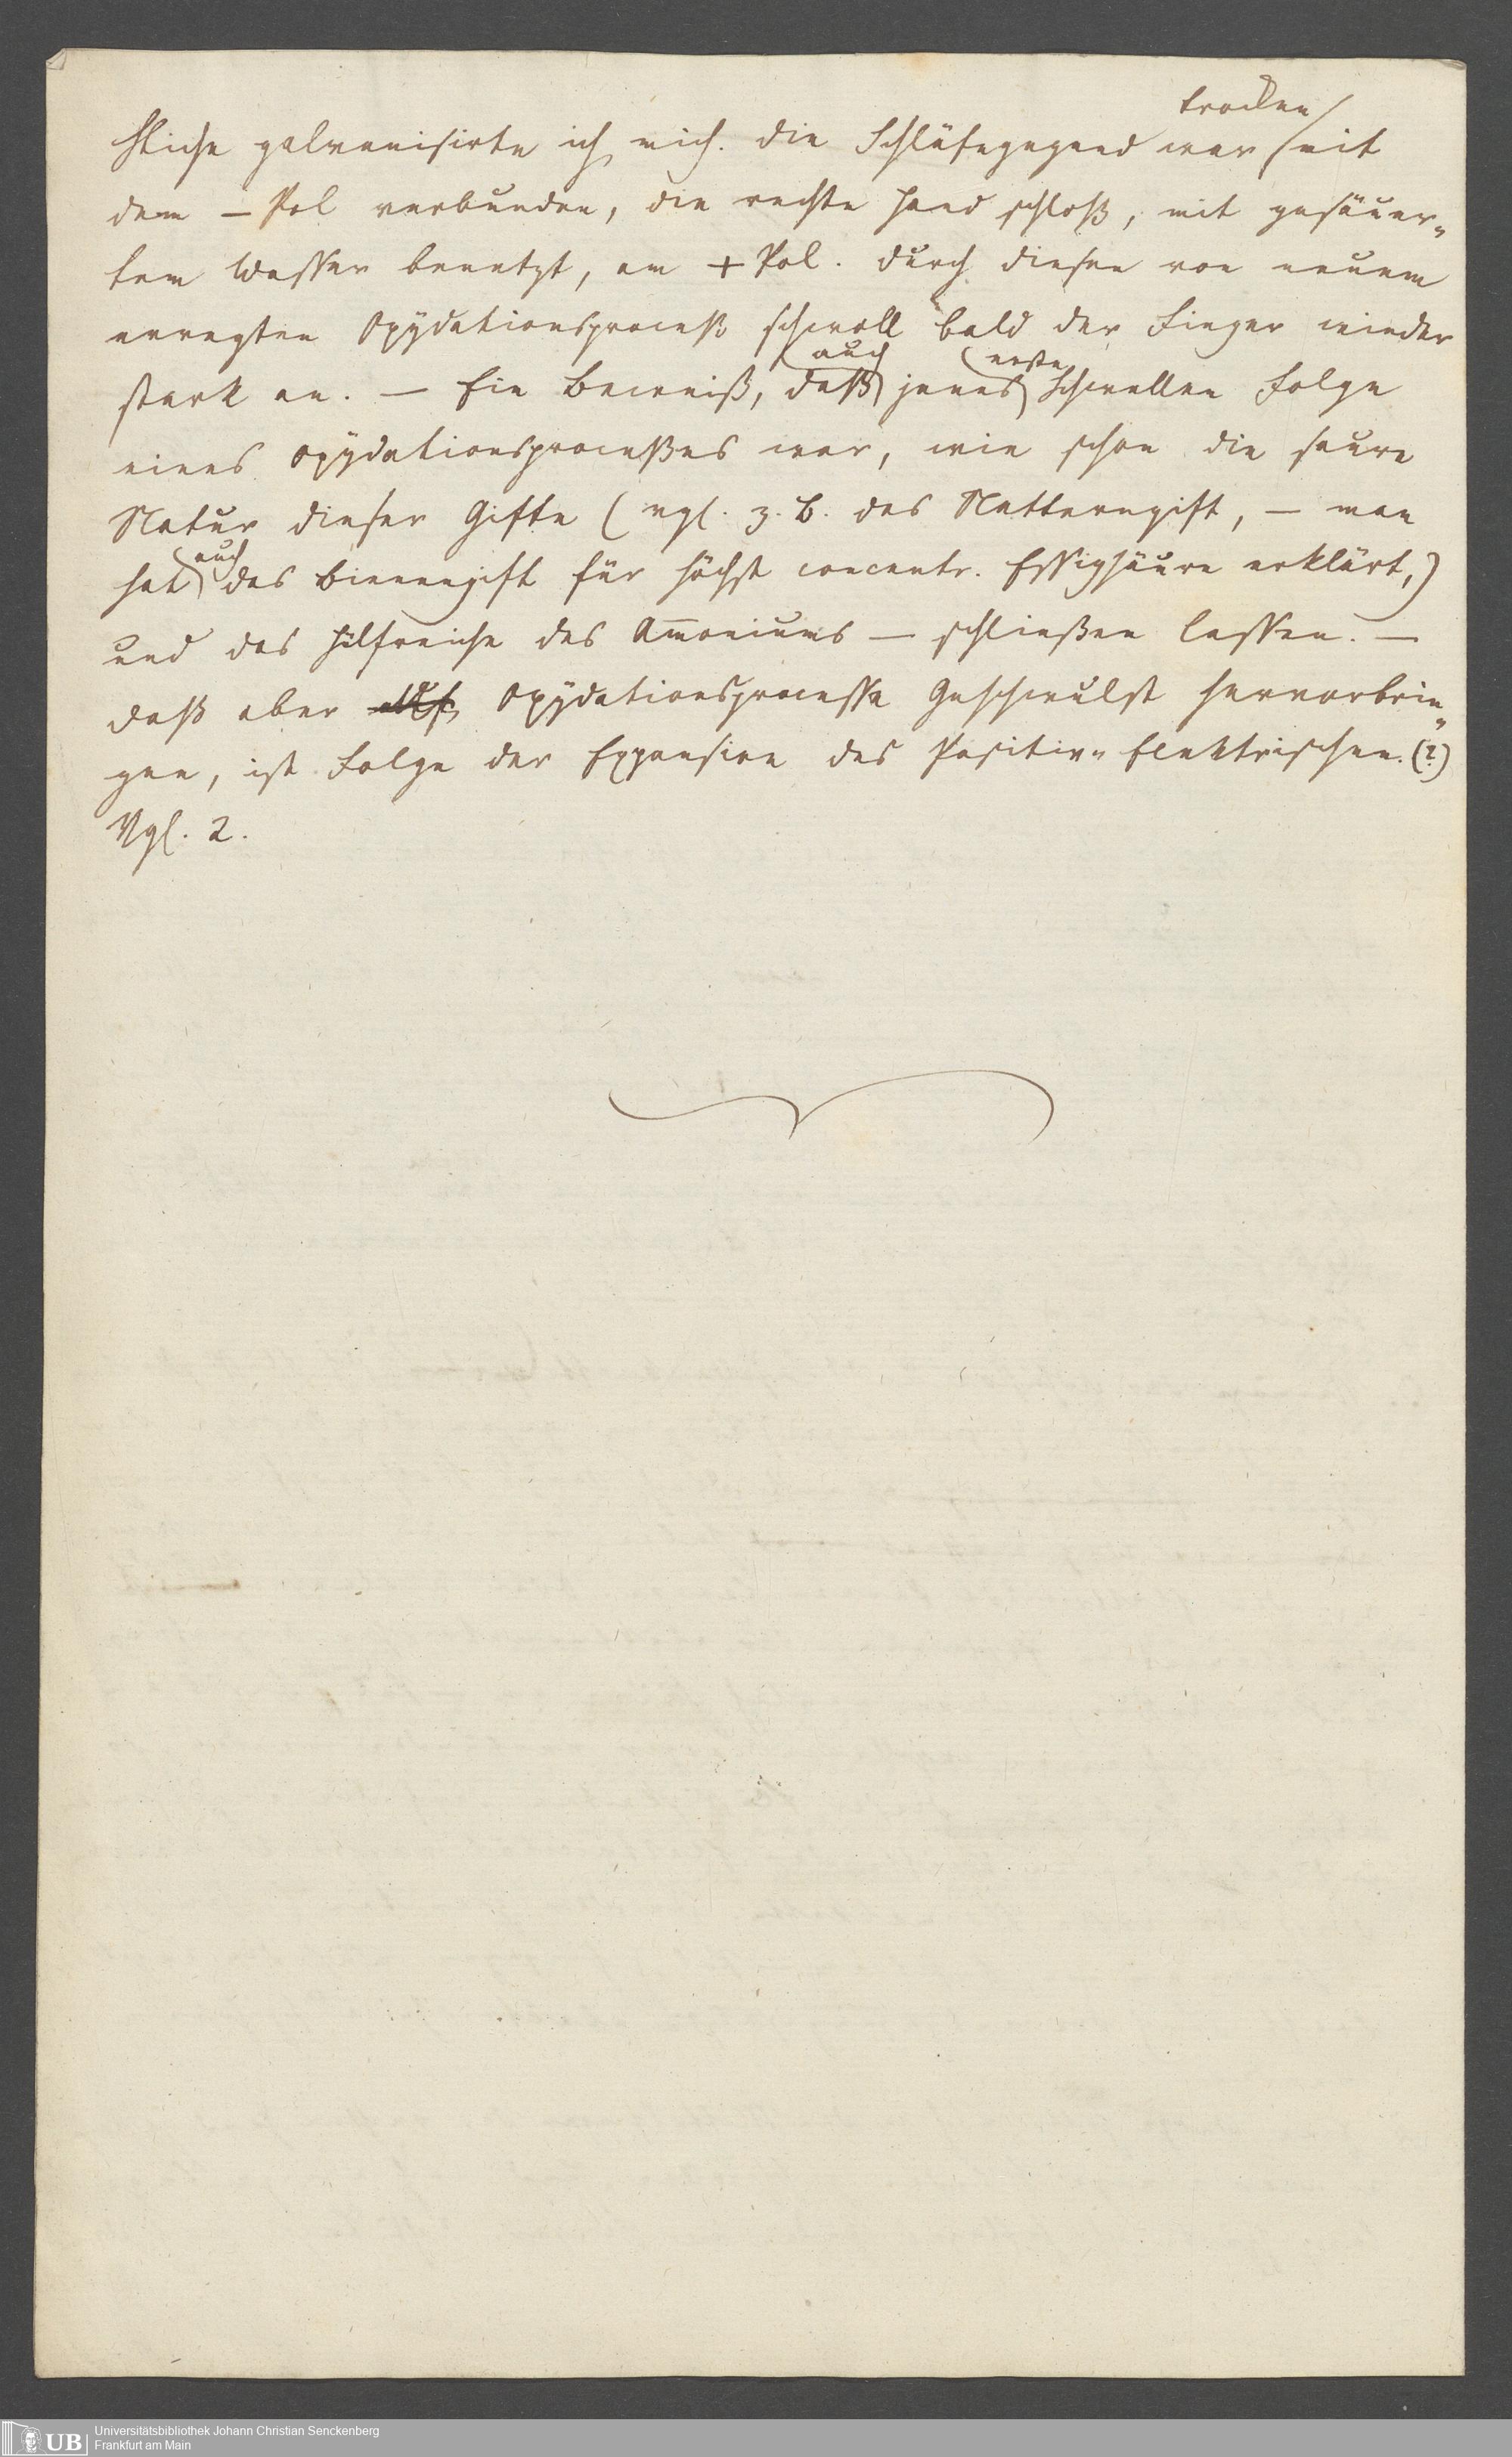 Stiche galvanisirte ich mich. Die Schläfegegend war trocken mit
dem – Pol verbunden, die rechte Hand schloß, mit gesäuer„
tem Wasser benetzt, am + Pol. Durch diesen von neuem
erregten Oxydationsproceß schwoll bald der Finger wieder
stark an. — Ein Beweiß, daß auch jenes erste Schwellen Folge
eines Oxydationsproceßes war, wie schon die saure
Natur dieser Gifte (vgl. z. B. das Natterngift, — man
hat auch das Bienengift für höchst concentr. Essigsäure erklärt,)
und das Hülfreiche des Am̄oniums — schließen lassen. —
Daß aber Oxydationsprocesse Geschwulst hervorbrin„
gen, ist Folge der Expansion des Positiv„Elektrischen. (?)
Vgl. 2.
UB
Universitätsbibliothek Johann Christian Senckenberg
Frankfurt am Main